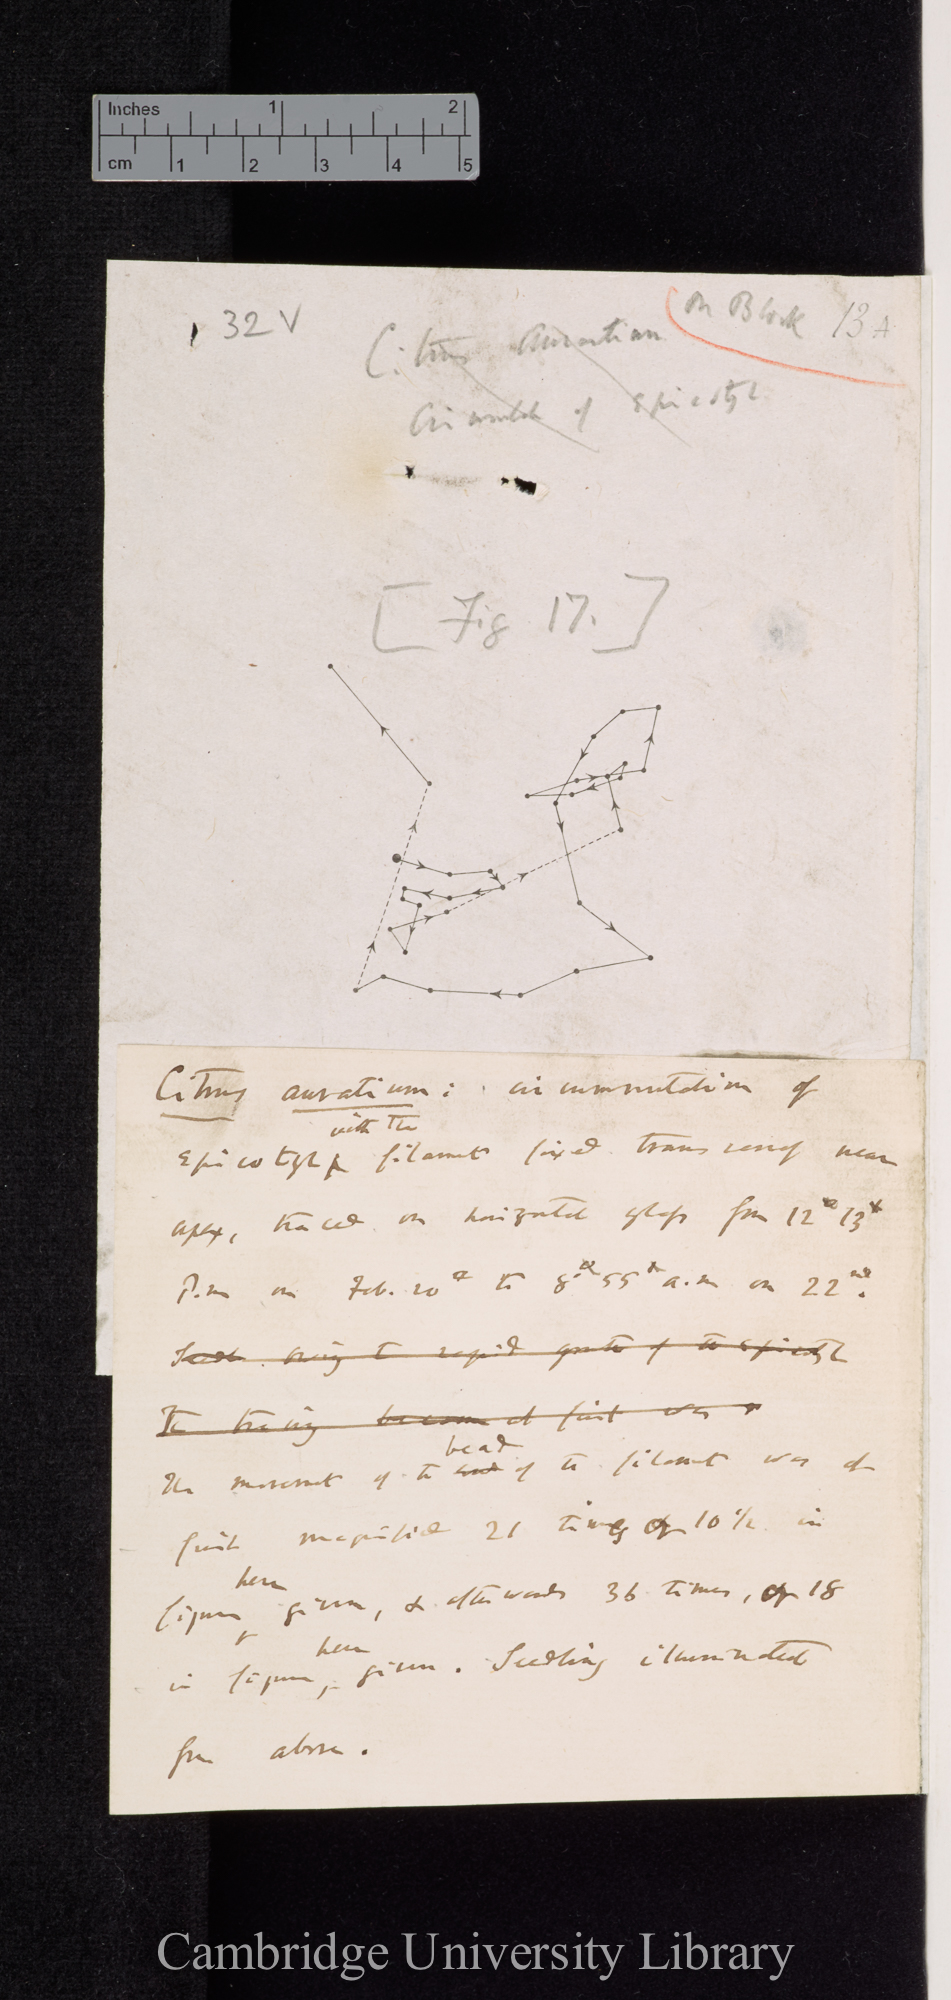 Inches 1 2
cm 1 2 3 4 5
32 V
On Block 13 A
Citrus Aurantium
Circumnutn of Epicotyl
[Fig 17.]
Citrus aurantium : circumnutation of
with the
Epicotyl filament fixed transversely near
apex, traced on horizontal glass from 12 13
P.m on Feb. 20 to 8 55 a.m on 22nd.
owing to rapid growth of the Epicotyl
The tracing became at first was
bead
The movement of the end of the filament was at
first magnified 21 times or 10½ in
here
figure given, & afterwards 36 times, or 18
here
in figure given. Seedling illuminated
from above.
Cambridge University Library